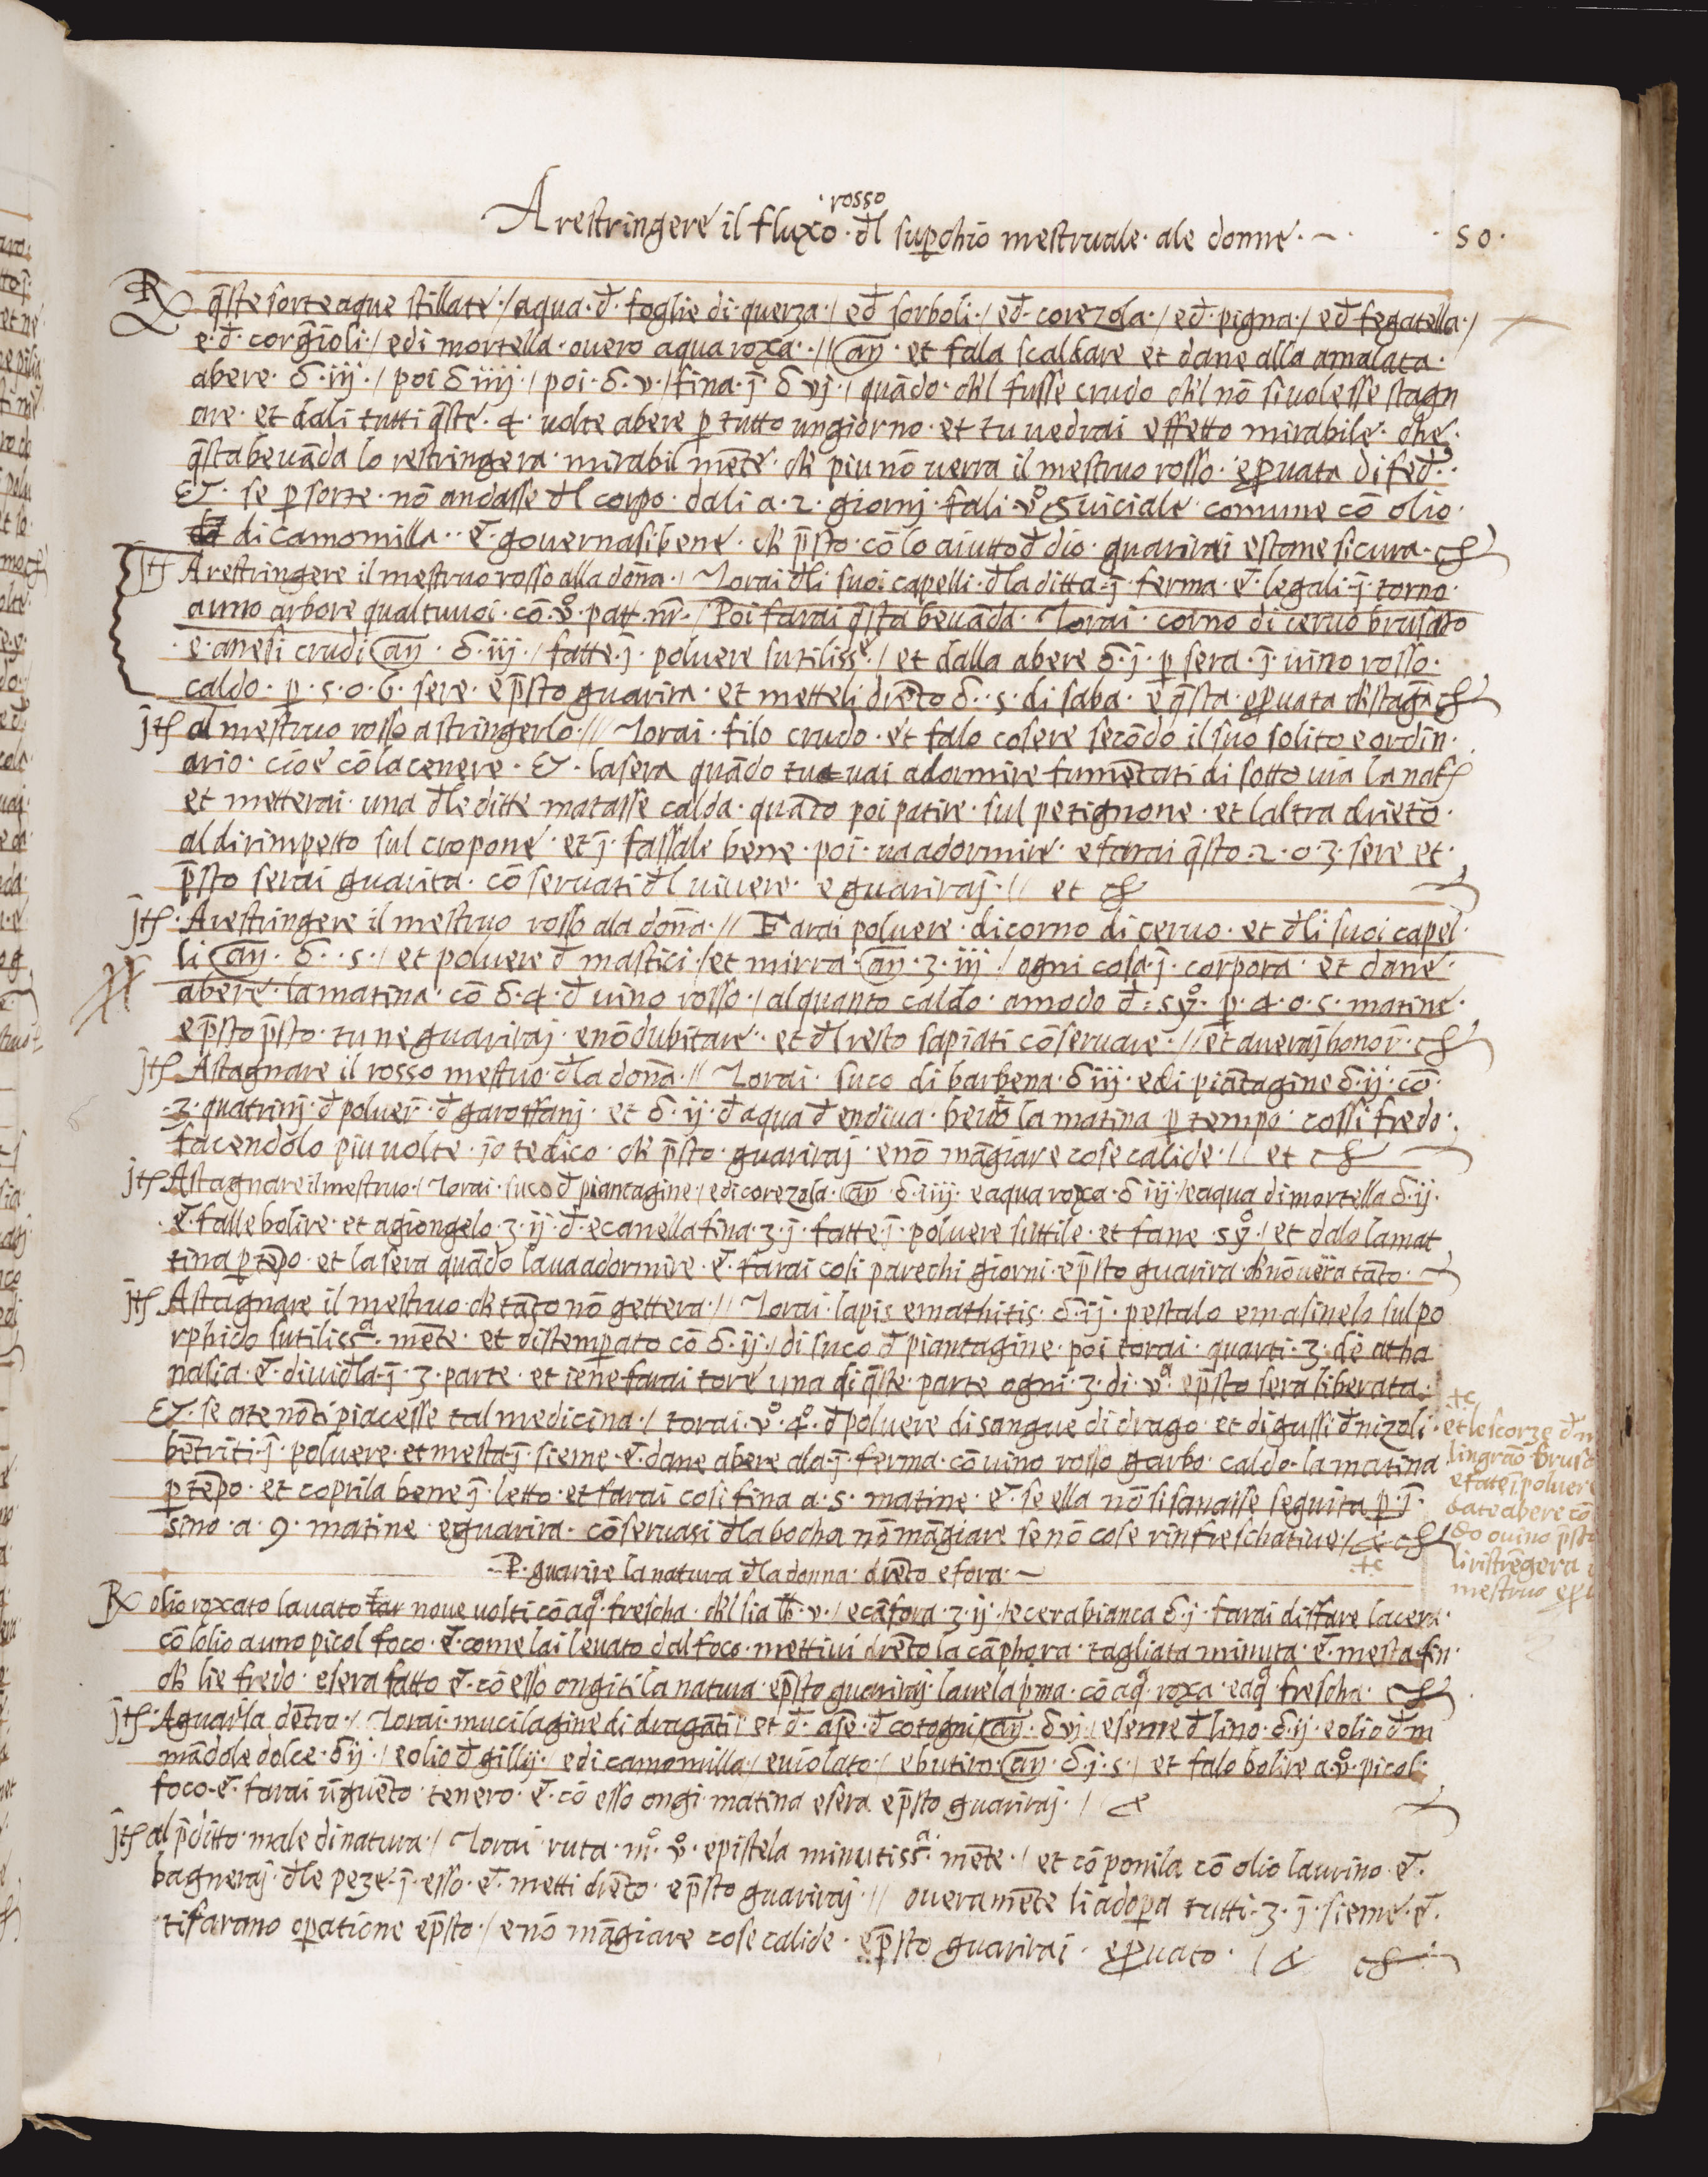 · rosso
A restringere il fluxo · đl supchio mestruale · ale donne · ~ · · 50 ·
℞ q̄ste sorte aque stillate · / aqua · đ · foglie di · querza · / e đ sorboli · / e đ · corezola · / e đ · pigna · / e đ fegatella · /
e · đ · corḡioli · / e di mortella · overo aqua roxa · // añ · et falla scaldare et dane alla amalata ·
abere · δ · iij · / poi δ iiij · / poi · δ · v · / fina · j̄ · δ vj · / quādo · ch'l fusse crudo ch'l nō si volesse stagn
are · et dali tutti q̄ste · 4 · volte abere p tutto un giorno · et tu vedrai effetto mirabile · che ·
q̄sta bevāda lo restringera · mirabil mēte · ch piu nō verra il mestruo rosso · e p̱vata di fed ·
Et · se p sorte · nō andasse đl corpo · dali a · 2 · giornj · fali · v̊ · suiciale comune cō olio ·
di camomilla · · et · governasi bene · ch p̄sto · cō lo aiutto đ dio · guarirai e stane sicura ·
jtē A restringere il mestruo rosso alla doña · / Torai đli suoi capelli · đla ditta · j̄ · ferma · et · legali · j̄ · torno ·
a uno arbore qual tu voi · cō · v̊ · patt · nr̄ · / Poi farai q̄sta bevāda · Torai · corno di cervo brusato
· e · anesi crudi añ · δ · iij · / fatte · j̄ · polvere sutiliss̄e · / et dalla abere δ · j · p sera · j̄ · vino rosso ·
caldo · p · 5 · o · 6 · sere · e p̄sto guarira · et metteli drēto δ · 5 · di saba · e q̄sta · e p̱vata ch staḡa
jtē al mestruo rosso a stringerlo · /// Torai · filo crudo · et falo cosere secōdo il suo solito e ordin ·
ario · cioe cō la cenere · Et · la sera quādo tu vai a dormire fumētati di sotto via la nat̄
et metterai · una đle ditte matasse calda · quāto poi patire · sul petignone · et laltra drieto ·
al dirimpetto sul cropone · et j̄ · fassale bene · poi · va a dormire · e farai q̄sto · 2 · o 3 · sere et ·
p̄sto serai guarita · cō servati đl vivere · e guarirai · // et
jtē · A restringere il mestruo rosso ala doña · // Farai polvere · di corno di cervo · et đli suoi capel ·
li añ · δ · · s · / et polvere đ mastici · / et mirra · añ · 3 · iij · / ogni cosa · j̄ · corpora · et dane ·
abere · la matina · cō δ · 4 · đ vino rosso · / al quanto caldo · a modo đ · sẙ · p · 4 · o · 5 · matine ·
e p̄sto p̄sto · tu ne guarirai · e nō dubitare · et đl resto sapiati cōservare · // et averaj honor̄ ·
jtē A stagnare il rosso mestruo · đla doña · // Torai · suco di barbena · δ iij · e di piātagine δ · ij · cō ·
· 3 · quatrinj · đ polver̄ · đ garoffanj · et δ · ij · đ aqua đ endiva · bevi la matina p tempo · cossi fredo ·
facendolo piu volte · jo te dico · ch p̄sto · guariraj · e nō māgiare cose calide · // et
jtē A stagnare il mestruo · / Torai · suco đ piantagine · / e di corezola · añ δ · iiij · e aqua roxa · δ iij · / e aqua di mortella δ · ij ·
· et · falle bolire · et agiongelo · 3 · ij · đ · e canella fina · 3 · j · fatte · j̄ · polvere suttile · et fane · sẙ · / et dalo la mat
tina p tēpo · et la sera quādo la va a dormire · et · farai cosi parechi giorni · e p̄sto guarira · ch nō vēra tāto ·
jtē A stagnare il mestruo · ch tāto nō gettera · // Torai · lapis emathitis · δ · ij · pestalo e masinelo sul po
rphido sutiliss̄a · mēte · et distemperato cō δ · ij · / di suco đ piantagine · poi torai · quarti · 3 · de atha
nasia · et · dividla · j̄ · 3 · parte · et iene farai tore una di q̄ste · parte ogni · 3 · di · v̊ · e p̄sto sera liberata ·
Et · se a te nō ti piacesse tal medicina · / torai · v̊ · 4̊ · đ polvere di sangue di drago · et di gussi đ nizoli ·
bē triti · j̄ · polvere · et mesta · j̄ · sieme · et · dane abere ala · j̄ · ferma · cō vino rosso garbo · caldo · la matina ·
p tēpo · et coprila bene j̄ · letto · et farai cosi fina a · 5 · matine · et · se ella nō si sanasse sequita p · j̄ ·
sino · a · 9 · matine · e guarira · cōservasi đla bocha nō māgiare se nō cose rinfreschative · / &
et le scorze đ
lingrāo brus
e fate j̄ polvere
date abere cō
do o vino p̄sto
li ristrēgera
mestruo e p̱
· P · guarire la natura đla donna · drēto e fora · ~
℞ olio roxato lavato nove volti cō aq̄ · frescha · ch'l sia ℔ · v · / e cāfora · 3 · ij · / e cera bianca δ · j · farai disfare la cera ·
cō lolio a uno picol foco · et · come lai levato dal foco · mettivi drēto la cāphora · tagliata minuta · et · mesta fin ·
ch lie fredo · e sera fatto et · cō esso ongiti la natura e p̄sto guariraj · lavela pma · cō aq̄ · roxa · e aq̄ frescha ·
jtē · A guarila dētro · / Torai · mucilagine di dragāti · et đ · ase · đ cotogni / añ · δ vj · / e seme đ lino · δ · ij · e olio đ m
mādole dolce · δ ij · / e olio đ gillij · / e di camomilla · / e violato · / e butiro · añ · δ · j · s · / et falo bolire a · v̊ · picol ·
foco · et · farai ūguēto · tenero · et · cō esso ongi · matina e sera e p̄sto guariraj · / &
jtē al p̄ditto · male di natura · / Torai ruta · m̊ · v̊ · e pistela minutiss̄a · mēte · / et cō ponila cō olio laurino · et ·
bagneraj · đle peze · j̄ · esso · et · metti drēto · e p̄sto guariraj · // overamēte li adopra tutti · 3 · j̄ · sieme · et ·
ti farano opatione e p̄sto · / e nō māgiare cose calide · e p̄sto guarirai · e p̱vato · / &